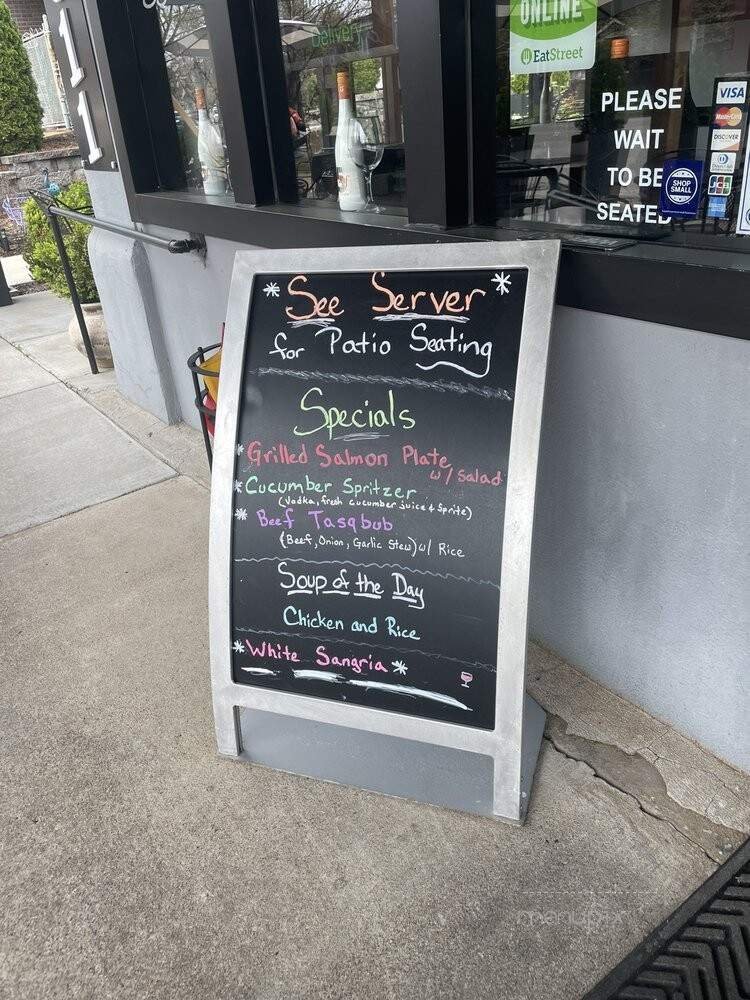 11.
Delivery
ONLINE
EatStreet
PLEASE
WAIT
TO BE
SEATED
VISA
MasterCard
DISCOVER
JCB
SHOP
SMALL
* See Server *
for Patio Seating
Specials
* Grilled Salmon Plate
w/ Salad
* Cucumber Spritzer
(Vodka, fresh cucumber juice & Sprite)
* Beef Tasqbub
(Beef, Onion, Garlic Stew) w/ Rice
Soup of the Day
Chicken and Rice
* White Sangria *
menupix